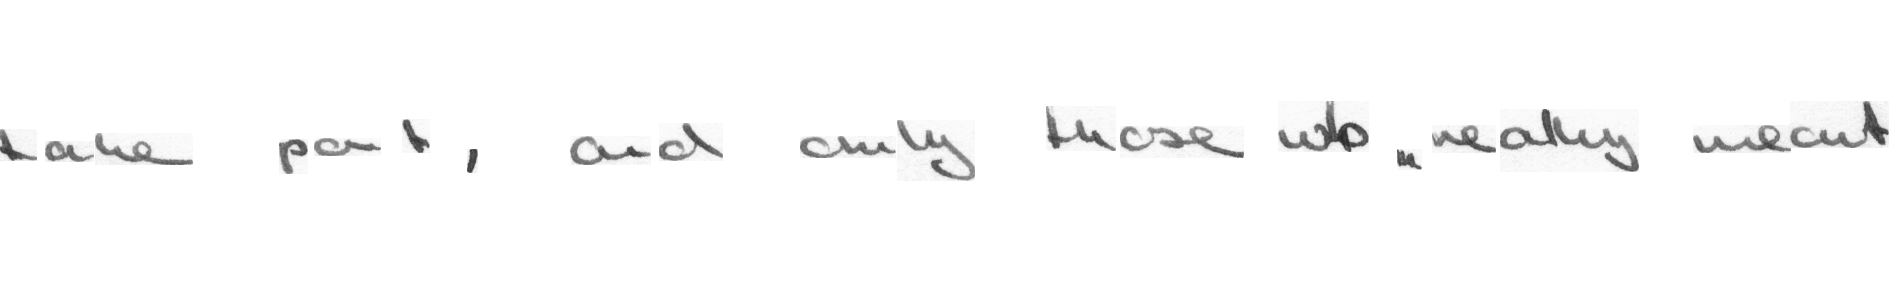 take part , and only those who " really meant